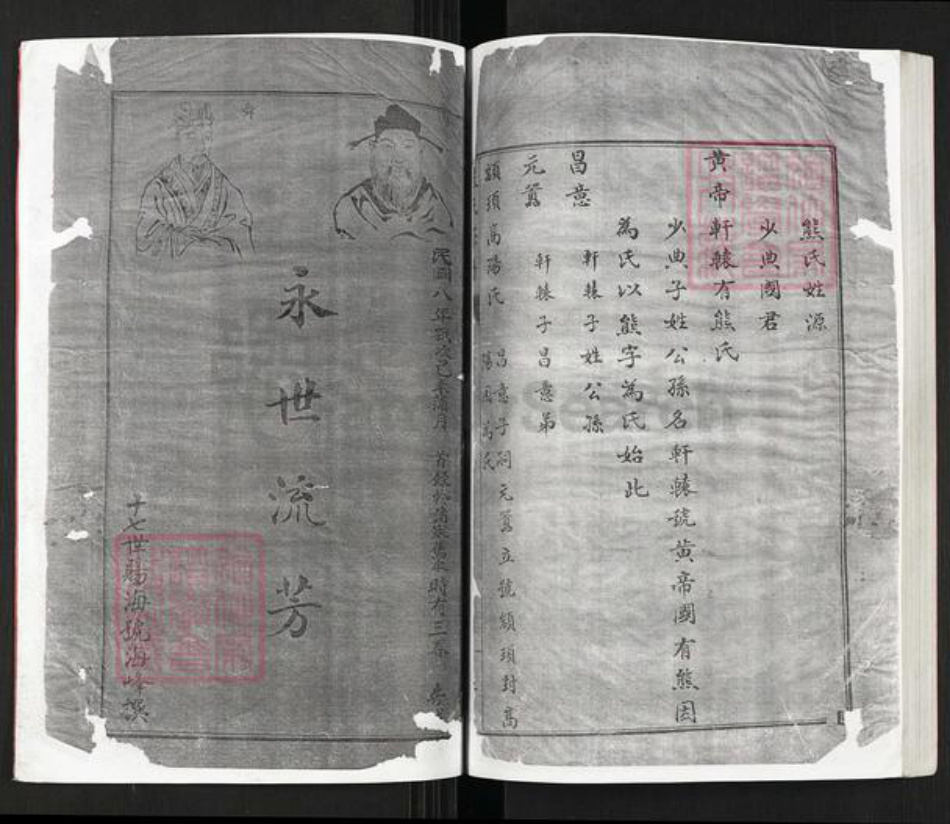 熊氏姓源
少典國君
黄帝軒轅有熊氏
少典子姓公孫名軒轅號黄帝國有熊因
為氏以熊字為氏始此
昌意
軒轅子姓公孫
元囂
軒轅子昌意弟
顓頊高陽氏
昌意子祠元囂立號顓頊封高
陽因為氏
民國八年歲次己未蒲月
時有三
永世流芳
十七世賜海號海峰撰